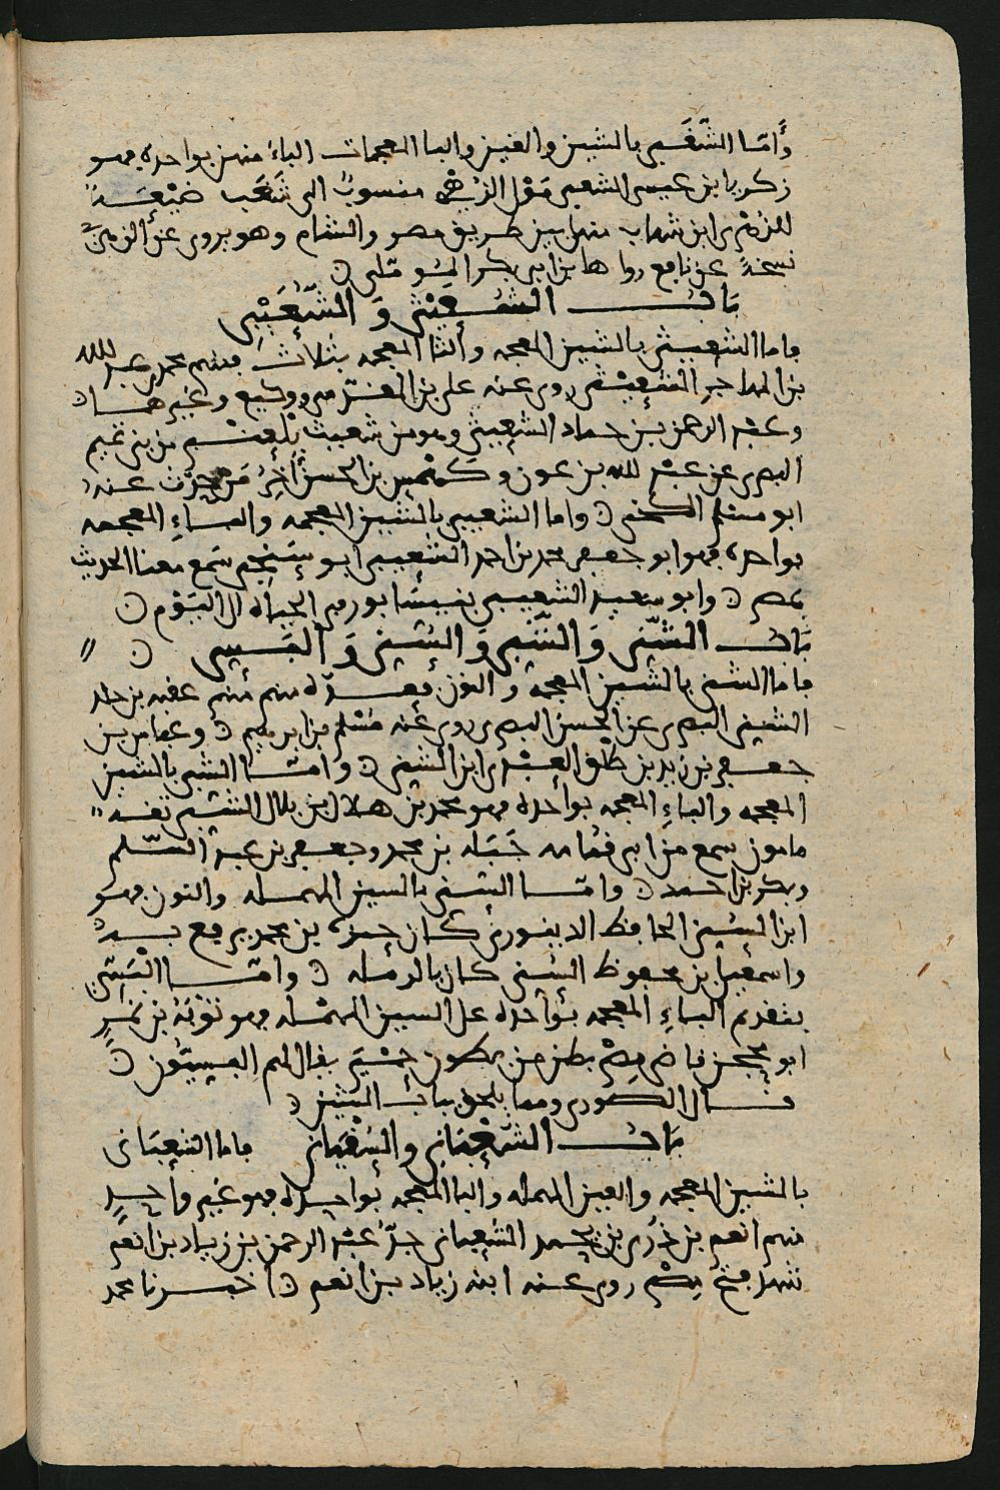 وأما الشغبي بالشين والغين والبا المعجمات الباء منهن بواحدة فهو
زكريا بن عيسى الشغبي مولى الزهري منسوب الى شغب ضيعة
للزهري ابن شهاب منها بين طريق مصر والشام وهو يروي عن الزهري
نسخة عن نافع رواها بن ابي بكر الموملي
باب الشعيثي و الشعيبي
فاما الشعيثي بالشين المعجمه والثا المعجمه بثلاث فمنهم محمد بن عبد الله
بن المهاجر الشعيثي روى عنه علي بن المغيرة ووكيع وغيرهما
وعبد الرحمن بن حماد الشعيثي وهو من شعيث بلعنبر من بني تميم
البصري عن عبد الله بن عون وكهمس بن الحسن اخر من حدث عنه
ابو مسلم الكجي واما الشعيبي بالشين المعجمه والباء المعجمه
بواحدة فهو ابو جعفر محمد بن احمد الشعيبي ابو سمع معنا الحديث
بمصر وابو سعيد الشعيبي بنيسابور في الحياة الى اليوم
باب الشني و الشبي و السني و البسي
فاما الشني بالشين المعجمة والنون فعدة منهم عقبه بن خالد
الشني البصري عن الحسن البصري روى عنه مسلم بن ابرهيم وعباس بن
جعفر بن زيد بن طلق العبدي ابن الشني واما الشبي بالشين
المعجمه والباء المعجمه بواحدة فهو محمد بن هلال بن بلال الشبي ثقة
مامون سمع من ابي قمامه جبله بن محمد وجعفر بن عبد السلم
وبكر بن احمد واما السني بالسين المهمله والنون فهو
ابن السني الحافظ الدينوري كان حمزة بن محمد يرفع به
واسمعيل بن محفوظ السني كان بالرمله واما البسي
بتقديم الباء المعجمه بواحدة على السين المهمله فهو توبة بن نمر
ابو محجن قاضي مصر بطن من بطون حمير يقال لهم البسيون
قال الصوري ومما يلحق بباب الشين
باب الشعباني والسفياني فاما الشعباني
بالشين المعجمه والعين المهمله والبا المعجمه بواحدة فهو غير واحد
منهم انعم بن ذري بن يحمد الشعباني جد عبد الرحمن بن زياد بن انعم
شهد فتح مصر روى عنه ابنه زياد بن انعم اخبرنا محمد